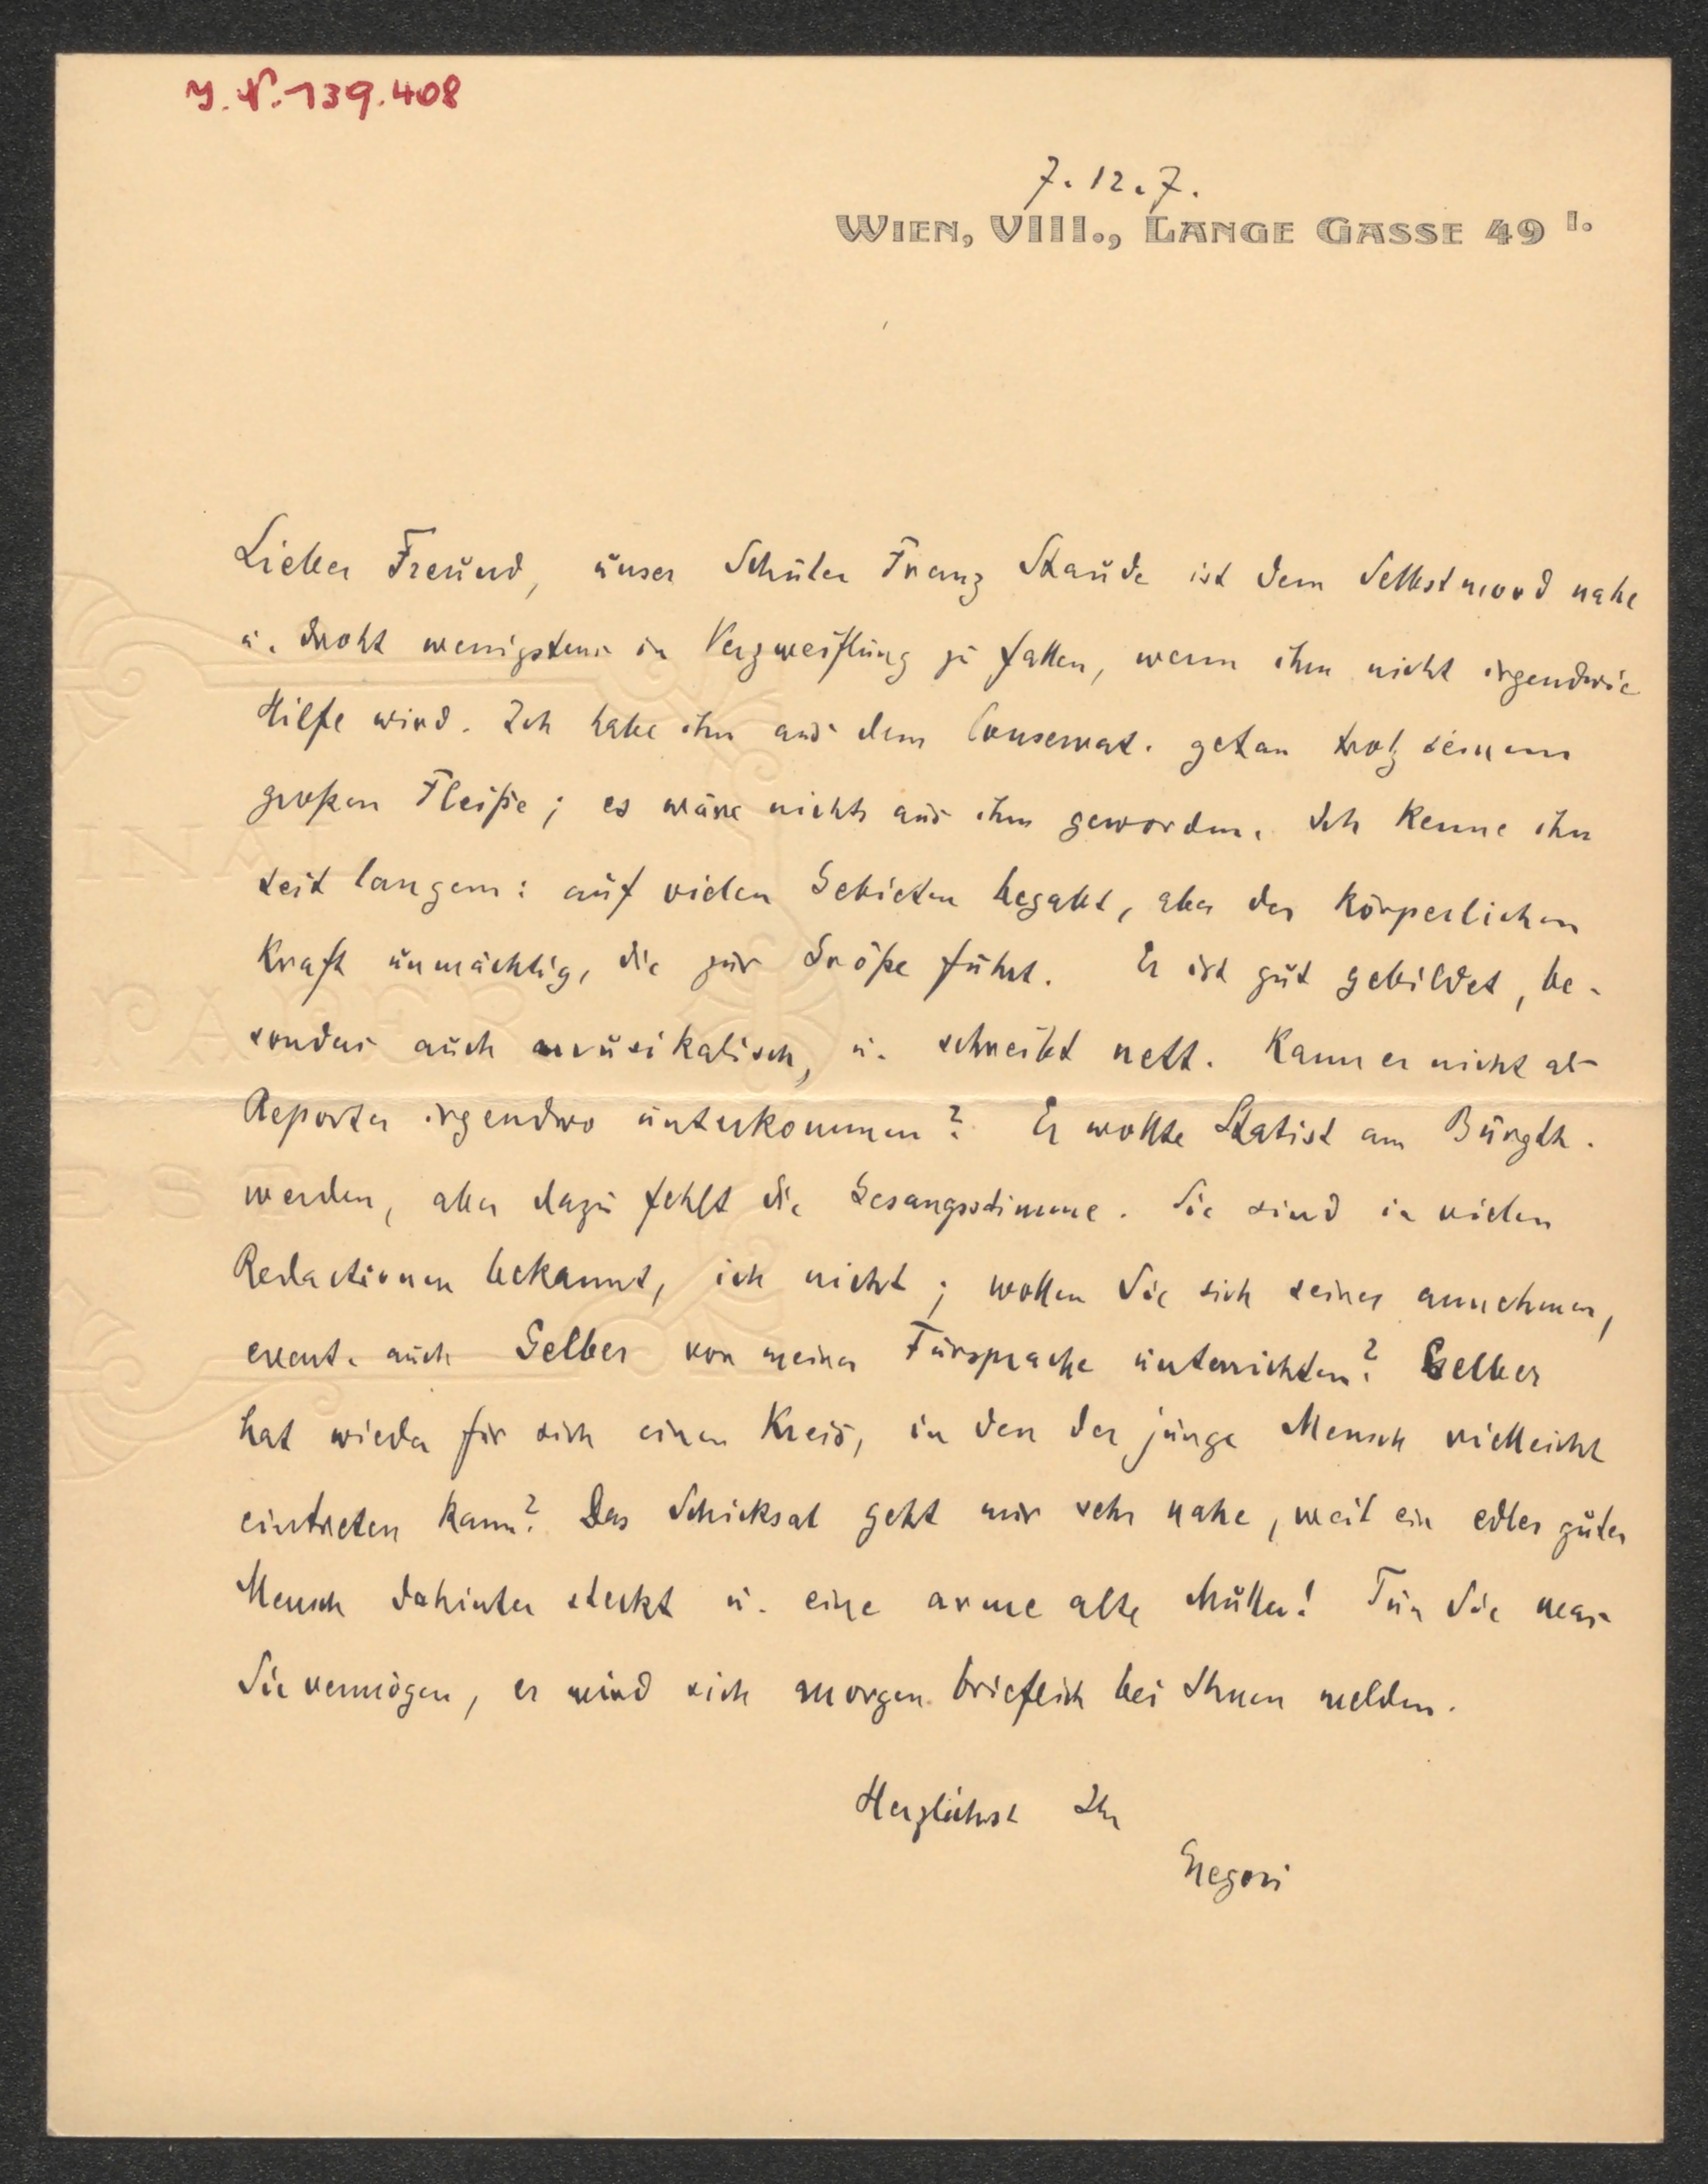 J. N. 139.408
7. 12. 7.
WIEN, VIII., LANGE GASSE 49 I.
Lieber Freund, unser Schüler Franz Staude ist dem Selbstmord nahe
u. droht wenigstens in Verzweiflung zu fallen, wenn ihm nicht irgendwie
Hilfe wird. Ich habe ihn aus dem Conservat. getan trotz seinem
großen Fleiße; es wäre nichts aus ihm geworden. Ich kenne ihn
seit langem: auf vielen Gebieten begabt, aber der körperlichen
Kraft unmächtig, die zur Größe führt. Er ist gut gebildet, be-
sonders auch musikalisch, u. schreibt nett. Kann er nicht als
Reporter irgendwo unterkommen? Er wollte Statist am Burgth.
werden, aber dazu fehlt die Gesangsstimme. Sie sind in vielen
Redactionen bekannt, ich nicht; wollen Sie sich seiner annehmen,
event. auch Gelber von meiner Fürsprache unterrichten? Gelber
hat wieder für sich einen Kreis, in den der junge Mensch vielleicht
eintreten kann? Das Schicksal geht mir sehr nahe, weil ein edler guter
Mensch dahinter steckt u. eine arme alte Mutter! Tun Sie was
Sie vermögen, er wird sich morgen brieflich bei Ihnen melden.
Herzlichst Ihr
Gregori